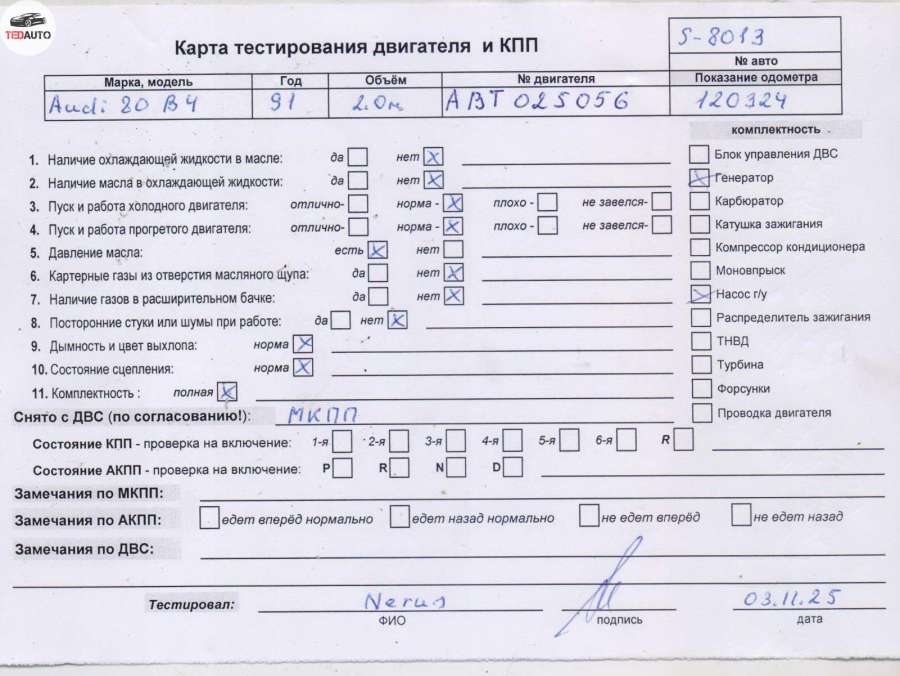 TEDAUTO
Карта тестирования двигателя и КПП
S-8013
№ авто
Марка, модель Год Объём № двигателя Показание одометра
Audi 80 B4 91 2.0м ABT 025056 120324
комплектность
1. Наличие охлаждающей жидкости в масле: да нет X
2. Наличие масла в охлаждающей жидкости: да нет X
3. Пуск и работа холодного двигателя: отлично- норма - X плохо - не завелся-
4. Пуск и работа прогретого двигателя: отлично- норма - X плохо - не завелся-
5. Давление масла: есть X нет
6. Картерные газы из отверстия масляного щупа: да нет X
7. Наличие газов в расширительном бачке: да нет X
8. Посторонние стуки или шумы при работе: да нет X
9. Дымность и цвет выхлопа: норма X
10. Состояние сцепления: норма X
11. Комплектность : полная X
Блок управления ДВС
X Генератор
Карбюратор
Катушка зажигания
Компрессор кондиционера
Моновпрыск
X Насос г/у
Распределитель зажигания
ТНВД
Турбина
Форсунки
Проводка двигателя
Снято с ДВС (по согласованию!): МКПП
Состояние КПП - проверка на включение: 1-я 2-я 3-я 4-я 5-я 6-я R
Состояние АКПП - проверка на включение: P R N D
Замечания по МКПП:
Замечания по АКПП: едет вперёд нормально едет назад нормально не едет вперёд не едет назад
Замечания по ДВС:
Тестировал: Nerus 03.11.25
ФИО подпись дата